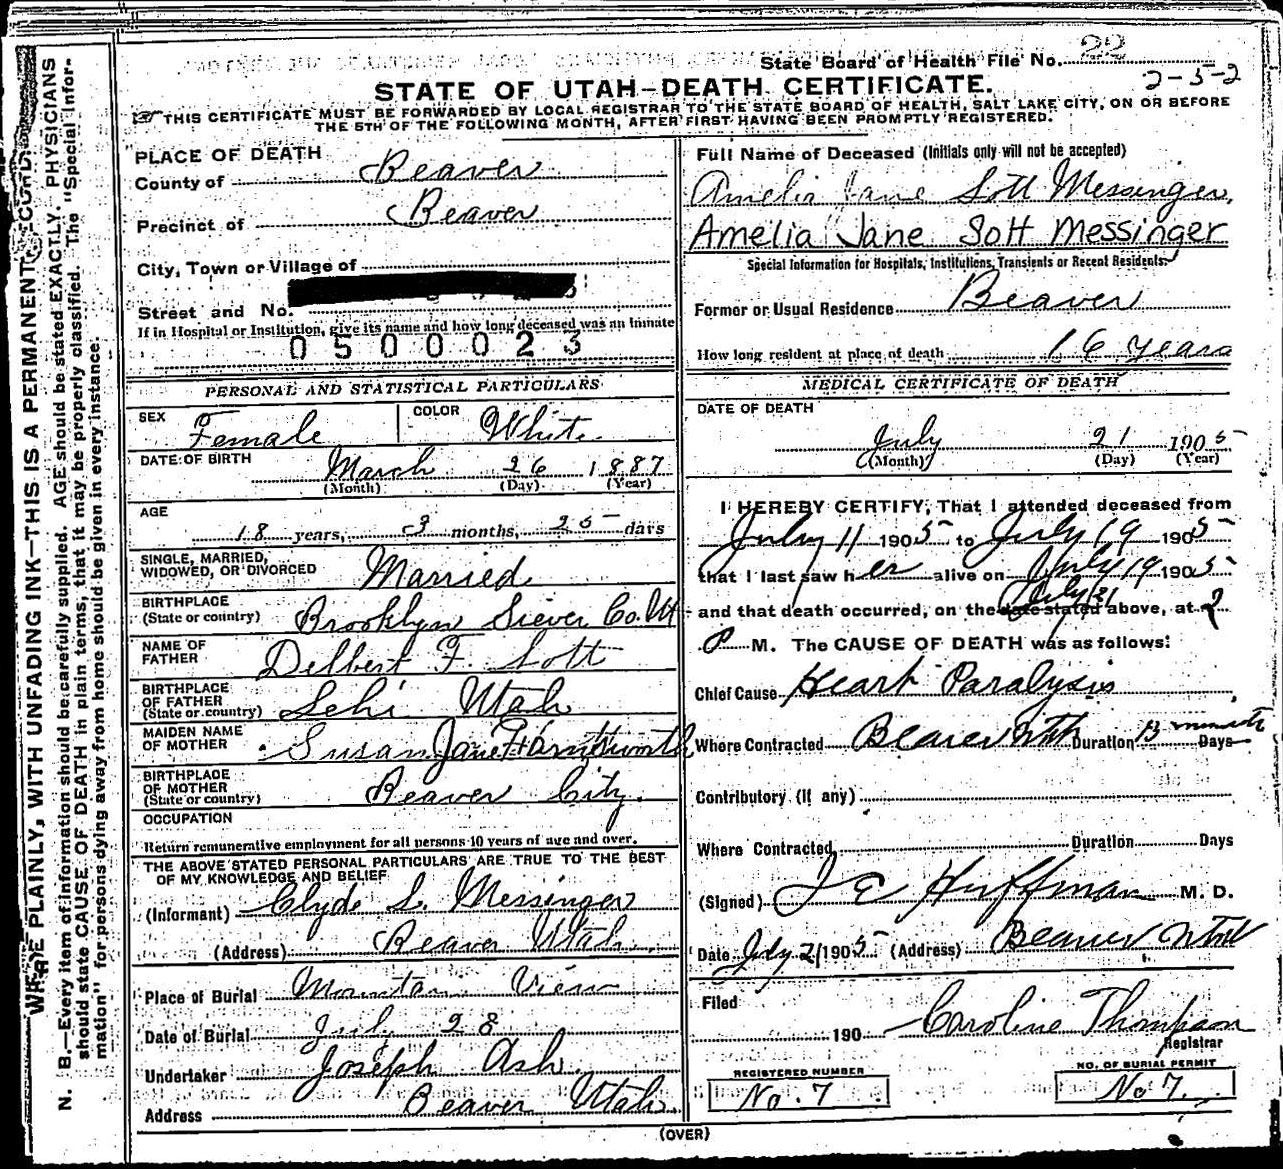 State Board of Health File No. 22
2-5-2
STATE OF UTAH-DEATH CERTIFICATE.
THIS CERTIFICATE MUST BE FORWARDED BY LOCAL REGISTRAR TO THE STATE BOARD OF HEALTH, SALT LAKE CITY, ON OR BEFORE
THE 5TH OF THE FOLLOWING MONTH, AFTER FIRST HAVING BEEN PROMPTLY REGISTERED.
WRITE PLAINLY, WITH UNFADING INK—THIS IS A PERMANENT RECORD.
N. B.—Every item of information should be carefully supplied. AGE should be stated EXACTLY. PHYSICIANS
should state CAUSE OF DEATH in plain terms, that it may be properly classified. The "Special Infor-
mation" for persons dying away from home should be given in every instance.
PLACE OF DEATH
County of Beaver
Precinct of Beaver
City, Town or Village of
Street and No.
If in Hospital or Institution, give its name and how long deceased was an Inmate
0500023
PERSONAL AND STATISTICAL PARTICULARS
SEX Female COLOR White
DATE OF BIRTH March 26 1887
(Month) (Day) (Year)
AGE
18 years, 3 months, 25 days
SINGLE, MARRIED,
WIDOWED, OR DIVORCED Married
BIRTHPLACE
(State or country) Brooklyn Siever Co. Ut
NAME OF
FATHER Delbert F. Sott
BIRTHPLACE
OF FATHER
(State or country) Lehi Utah
MAIDEN NAME
OF MOTHER Susan Jane Farnsworth
BIRTHPLACE
OF MOTHER
(State or country) Beaver City.
OCCUPATION
Return remunerative employment for all persons 10 years of age and over.
THE ABOVE STATED PERSONAL PARTICULARS ARE TRUE TO THE BEST
OF MY KNOWLEDGE AND BELIEF
(Informant) Clyde L. Messinger
(Address) Beaver Utah
Place of Burial Mountan View
Date of Burial July 28
Undertaker Joseph Ash
Address Beaver Utah
Full Name of Deceased (Initials only will not be accepted)
Amelia Jane Sott Messinger
Amelia Jane Sott Messinger
Special Information for Hospitals, Institutions, Transients or Recent Residents.
Former or Usual Residence Beaver
How long resident at place of death 16 years
MEDICAL CERTIFICATE OF DEATH
DATE OF DEATH
July 21 1905
(Month) (Day) (Year)
I HEREBY CERTIFY, That I attended deceased from
July 11 1905 to July 19 1905
that I last saw her alive on July 19 1905
July 21
and that death occurred, on the date stated above, at 2
P M. The CAUSE OF DEATH was as follows:
Chief Cause Heart Paralysis
Where Contracted Beaver Utah Duration 13 minutes Days
Contributory (If any)
Where Contracted Duration Days
(Signed) J E Huffman M. D.
Date July 21 1905 (Address) Beaver Utah
Filed
190 Caroline Thompson
Registrar
REGISTERED NUMBER
No. 7
NO. OF BURIAL PERMIT
No 7.
(OVER)